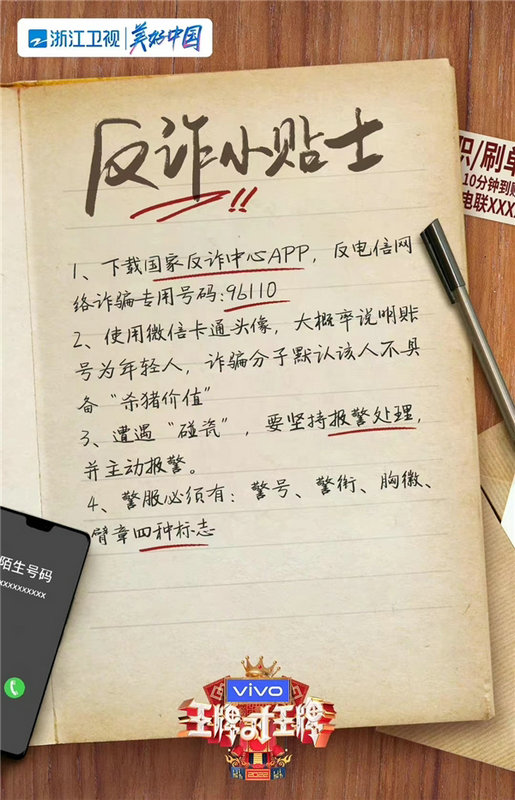 浙江卫视 美好中国
反诈小贴士!!
职/刷单
10分钟到账
电联XXX
1、下载国家反诈中心APP，反电信网
络诈骗专用号码:96110
2、使用微信卡通头像，大概率说明账
号为年轻人，诈骗分子默认该人不具
备“杀猪价值”
3、遭遇“碰瓷”，要坚持报警处理，
并主动报警。
4、警服必须有：警号、警衔、胸徽、
臂章四种标志
陌生号码
xxxxxxxxxxx
vivo
王牌对王牌
2022